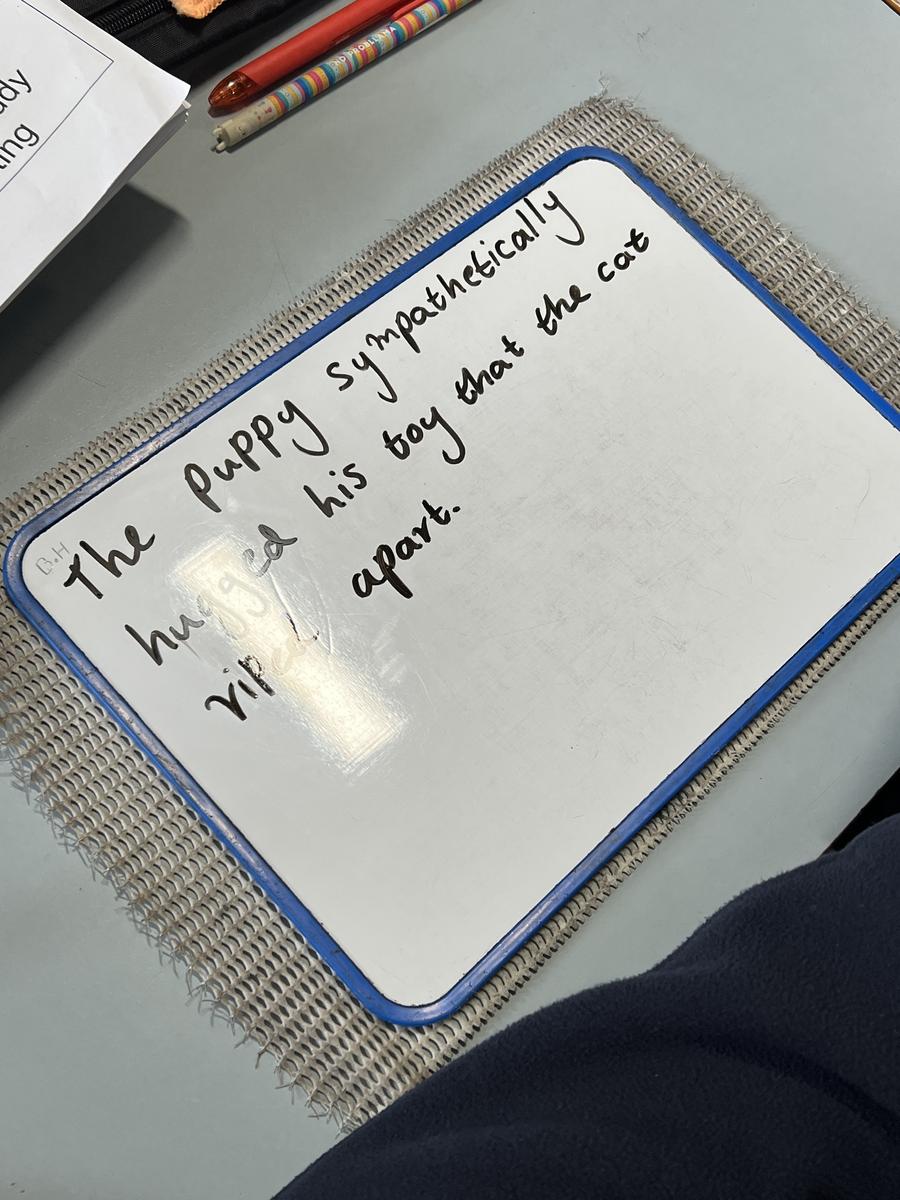 dy
ing
ND PROBLLAMA
B.H
The puppy sympathetically
hugged his toy that the cat
riped apart.